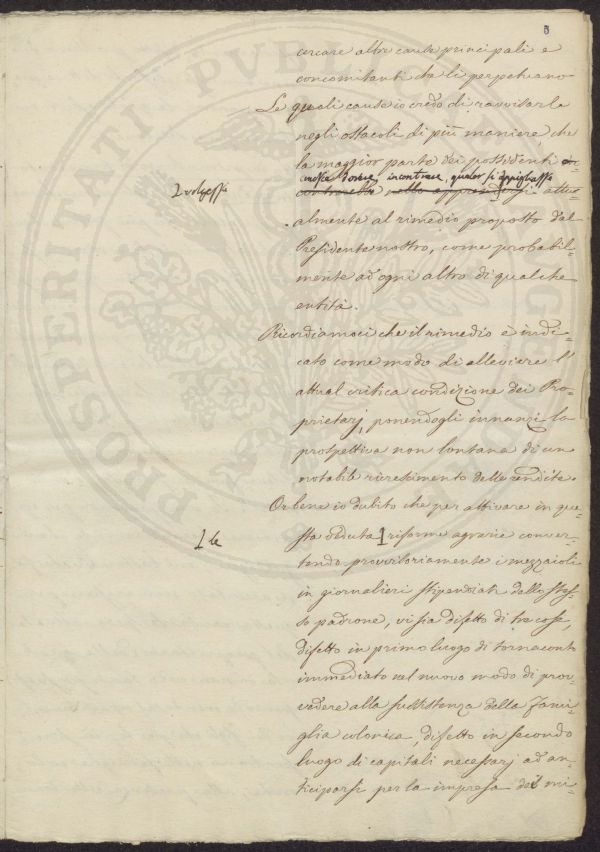 8
cercare altre cause principali e
concomitanti che li perpetuano
Le quali cause io credo di ravvisarle
negli ostacoli di più maniere, che
la maggior parte dei possidenti
possa dovere incontrare, qualor si appigliasse
volesse
almente al rimedio proposto dal
Presidente nostro, come probabil-
mente ad ogni altro di qualche
entità.
Ricordiamoci che il rimedio è indi-
cato come modo di alleviare l'
attual critica condizione dei Pro-
prietarj, ponendogli innanzi la
prospettiva non lontana di un
notabile ricrescimento delle rendite.
Or bene io dubito che per attivare in que-
sta veduta riforme agrarie conver-
le
tendo provvisoriamente i mezzaioli
in giornalieri stipendiati dallo stes-
so padrone, vi sia difetto di tre cose,
difetto in primo luogo di tornaconto
immediato nel nuovo modo di prov-
vedere alla sussistenza della fami-
glia colonica, difetto in secondo
luogo di capitali necessarj ad an-
ticiparsi per la impresa del mi-
PROSPERITATI PVBLICAE